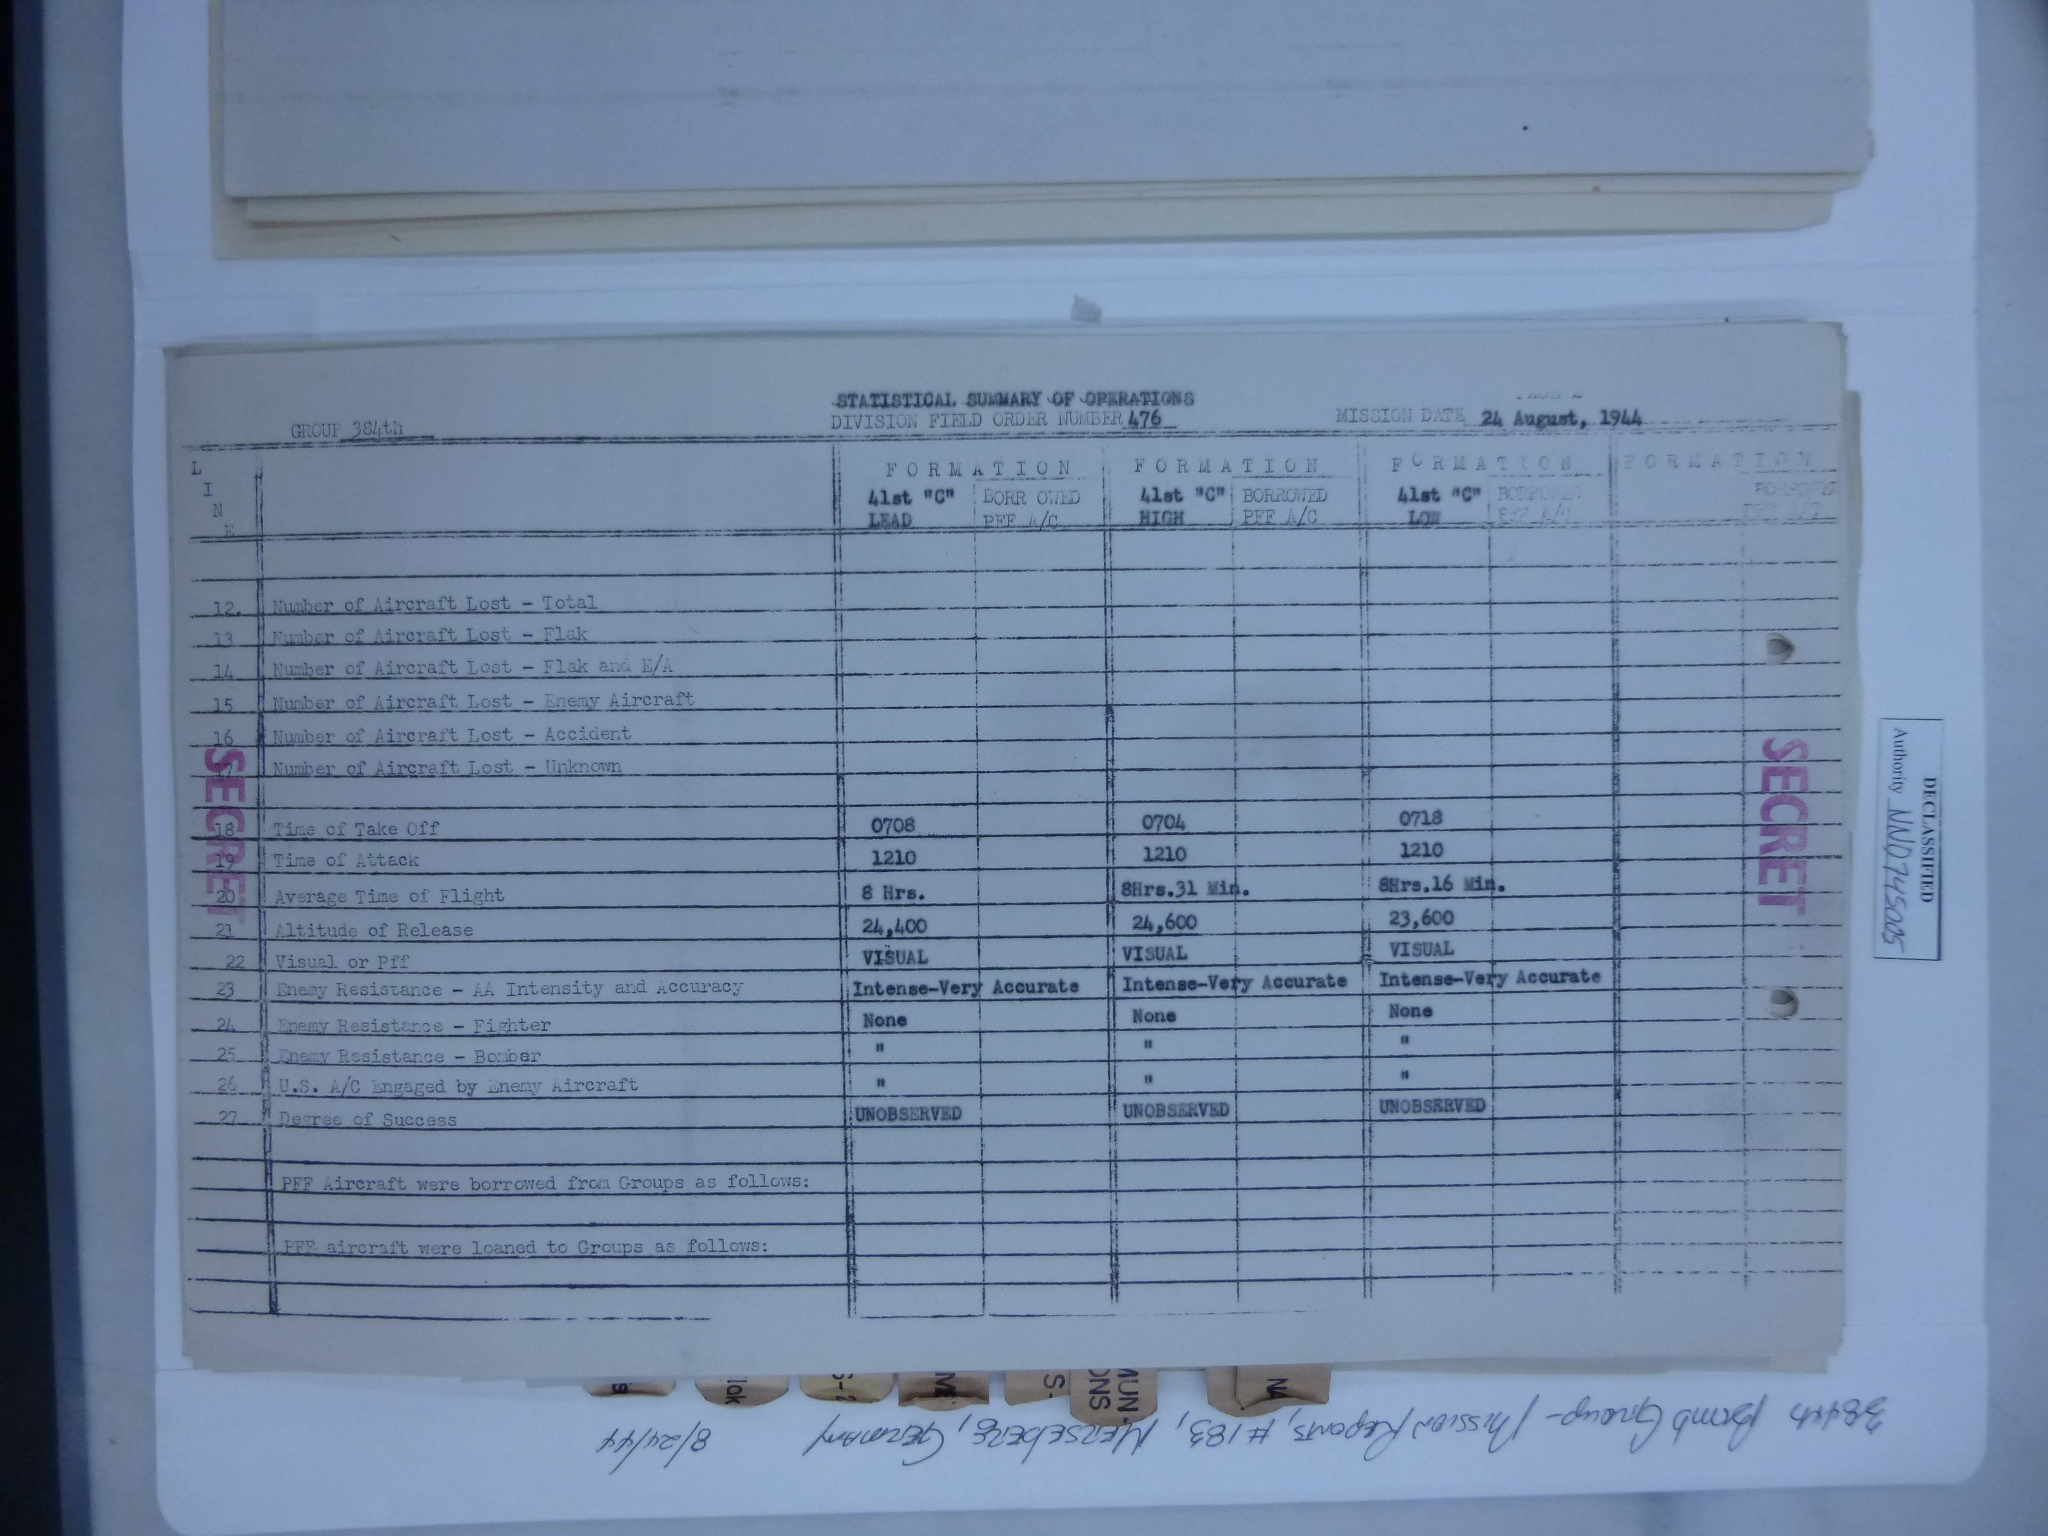 STATISTICAL SUMMARY OF OPERATIONS
GROUP 384th DIVISION FIELD ORDER NUMBER 476 MISSION DATE 24 August, 1944
LINE FORMATION FORMATION FORMATION FORMATION
41st "C" BORROWED 41st "C" BORROWED 41st "C" BORROWED BORROWED
LEAD PFF A/C HIGH PFF A/C LOW PFF A/C PFF A/C
12. Number of Aircraft Lost - Total
13 Number of Aircraft Lost - Flak
14 Number of Aircraft Lost - Flak and E/A
15 Number of Aircraft Lost - Enemy Aircraft
16 Number of Aircraft Lost - Accident
17 Number of Aircraft Lost - Unknown
18 Time of Take Off 0708 0704 0718
19 Time of Attack 1210 1210 1210
20 Average Time of Flight 8 Hrs. 8Hrs.31 Min. 8Hrs.16 Min.
21 Altitude of Release 24,400 24,600 23,600
22 Visual or Pff VISUAL VISUAL VISUAL
23 Enemy Resistance - AA Intensity and Accuracy Intense-Very Accurate Intense-Very Accurate Intense-Very Accurate
24 Enemy Resistance - Fighter None None None
25 Enemy Resistance - Bomber " " "
26 U.S. A/C Engaged by Enemy Aircraft " " "
27 Degree of Success UNOBSERVED UNOBSERVED UNOBSERVED
PFF Aircraft were borrowed from Groups as follows:
PFF aircraft were loaned to Groups as follows:
SECRET
SECRET
DECLASSIFIED
Authority NND745005
384th Bomb Group - Mission Reports, #183, Merseberg, Germany 8/24/44